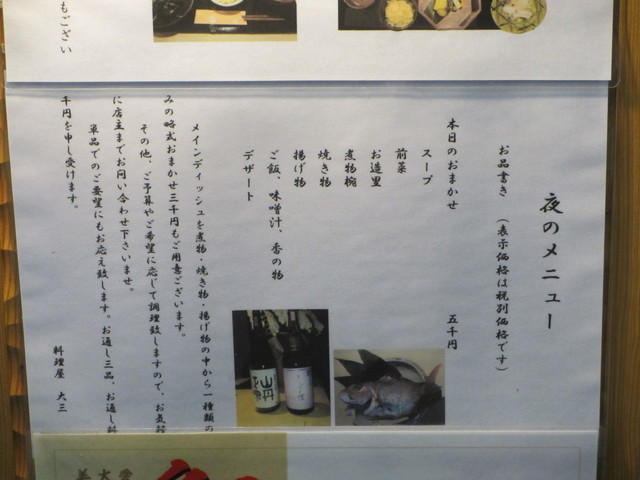 夜のメニュー
お品書き （表示価格は税別価格です）
本日のおまかせ 五千円
スープ
前菜
お造里
煮物椀
焼き物
揚げ物
ご飯、味噌汁、香の物
デザート
メインディッシュを煮物・焼き物・揚げ物の中から一種類の
みの略式おまかせ三千円もご用意ございます。
その他、ご予算やご希望に応じて調理致しますので、お気軽
に店主までお問い合わせ下さいませ。
単品でのご要望にもお応え致します。お通し三品、お通し料
千円を申し受けます。
料理屋 大三
もござい